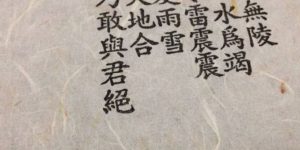 無陵
水為竭
雷震震
雨雪
地合
敢與君絕